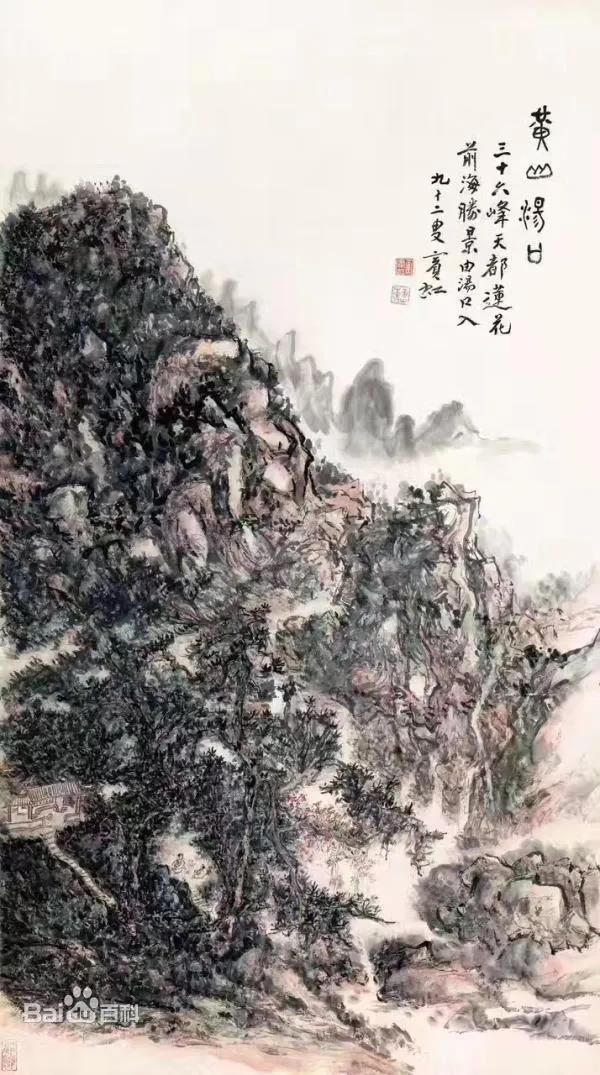 黄山湯口
三十六峰天都蓮花
前海勝景由湯口入
九十二叟賓虹
Bai百科